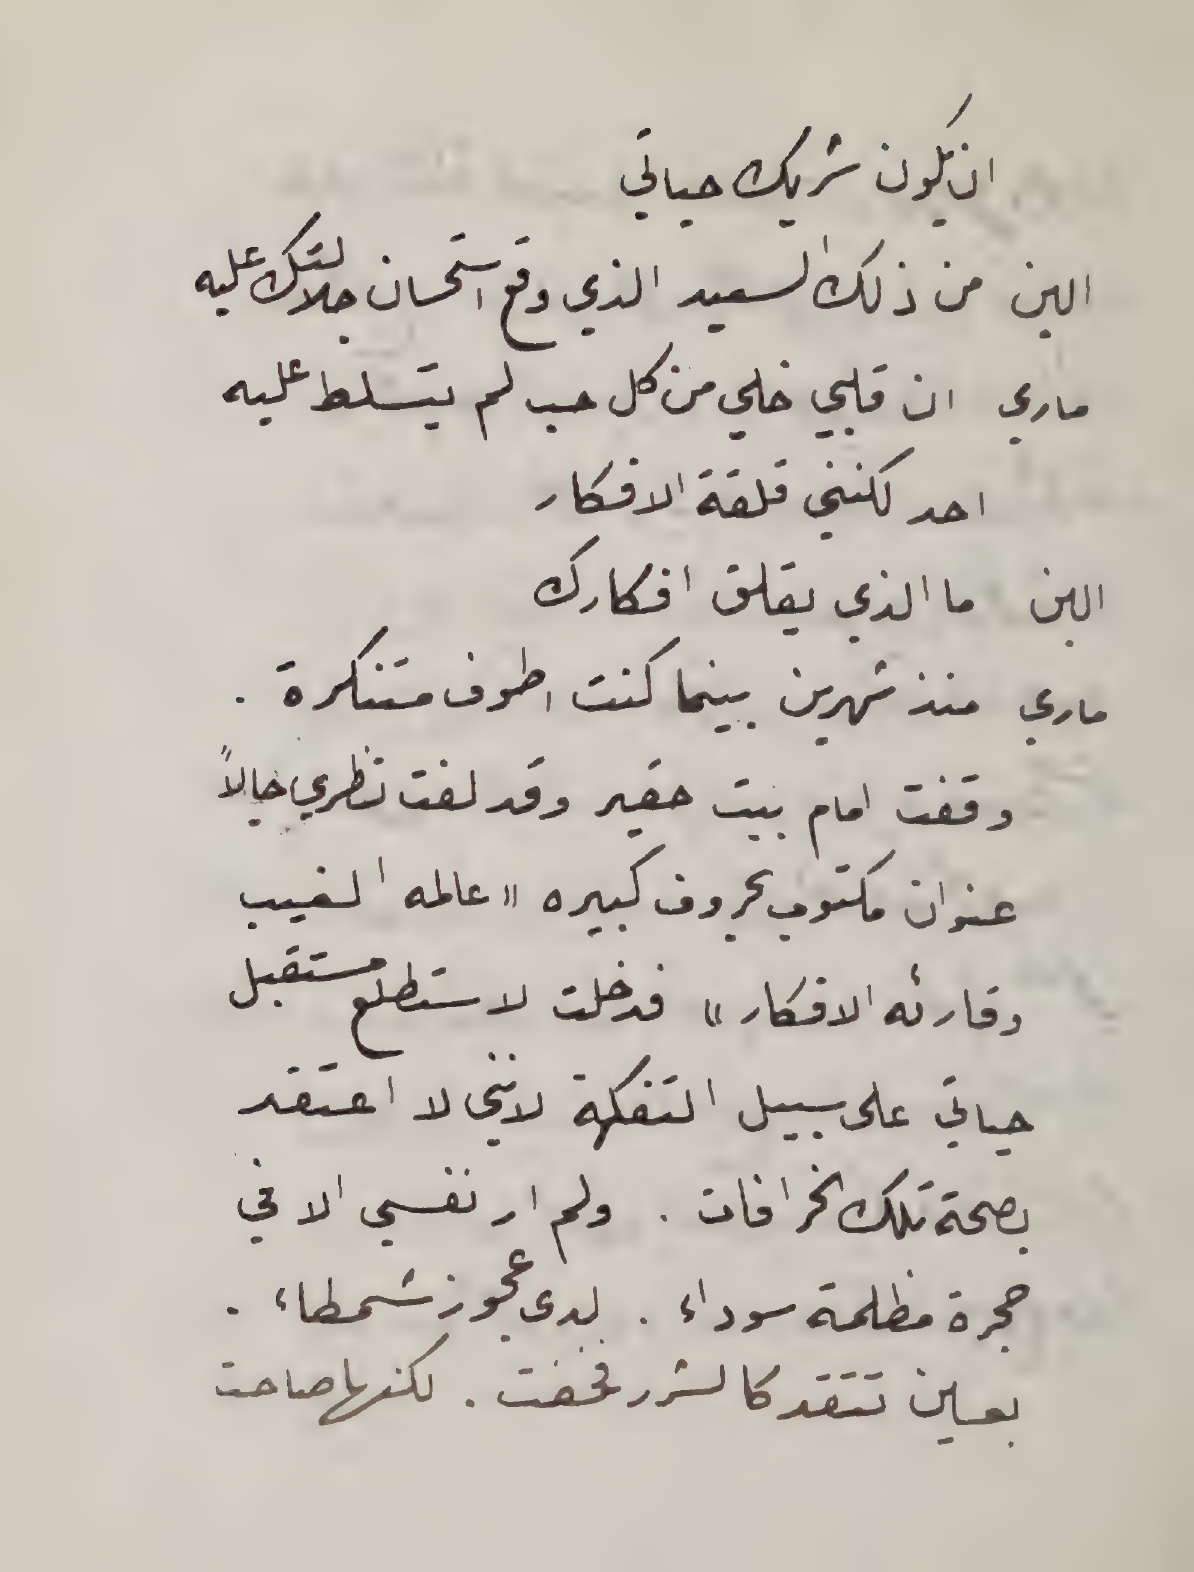 ان يكون شريك حياتي
الين من ذلك السعيد الذي وقع استحسان جلالتك عليه
ماري ان قلبي خلي من كل حب لم يتسلط عليه
احد لكنني قلقة الافكار
الين ما الذي يقلق افكارك
ماري منذ شهرين بينما كنت اطوف متنكرة .
وقفت امام بيت حقير وقد لفت نظري حالاً
عنوان مكتوب بحروف كبيره " عالمه الغيب
وقارئه الافكار " فدخلت لاستطلع مستقبل
حياتي على سبيل التفكهة لانني لا اعتقد
بصحة تلك الخرافات . ولم ار نفسي الا في
حجرة مظلمة سوداء . لدى عجوز شمطاء .
بعين تتقد كالشرر فخفت . لكنها صاحت